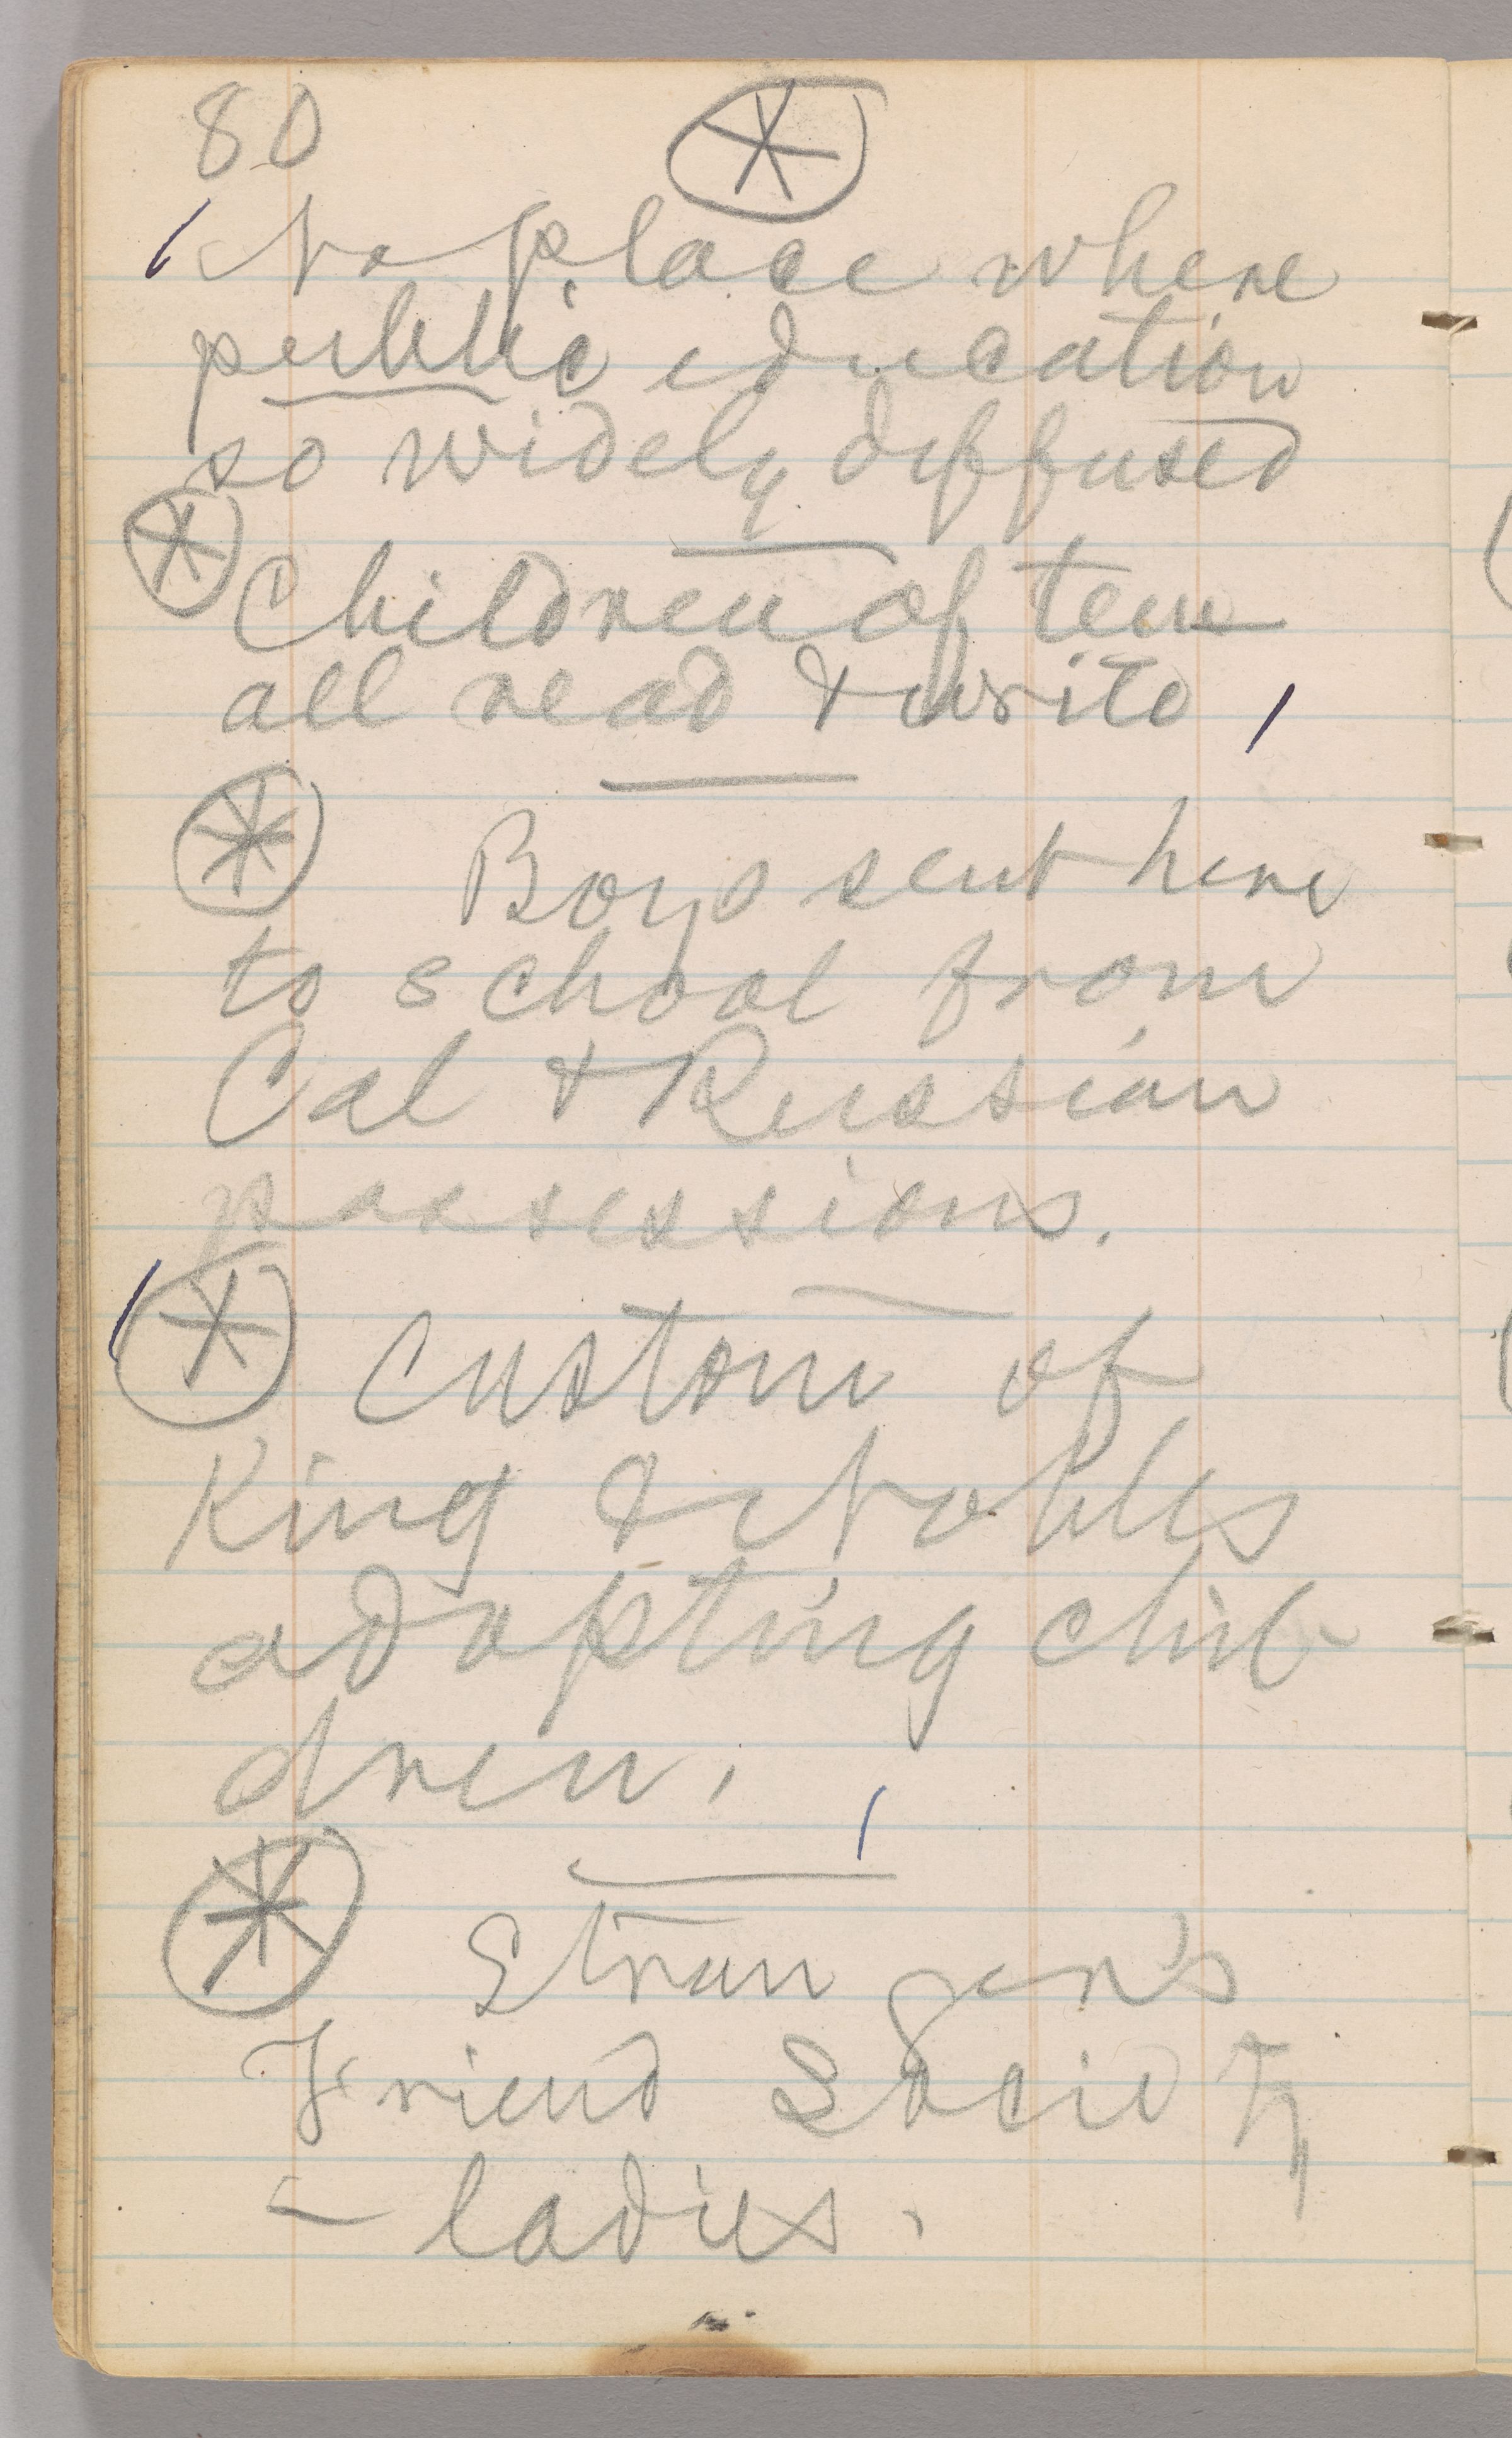 80
No place where
public education
so widely diffused
Children of ten
all read & write,
Boys sent here
to school from
Cal & Russian
possessions.
Custom of
King & Nobles
adopting chil-
dren.
Stranger's
Friend Society
– ladies.